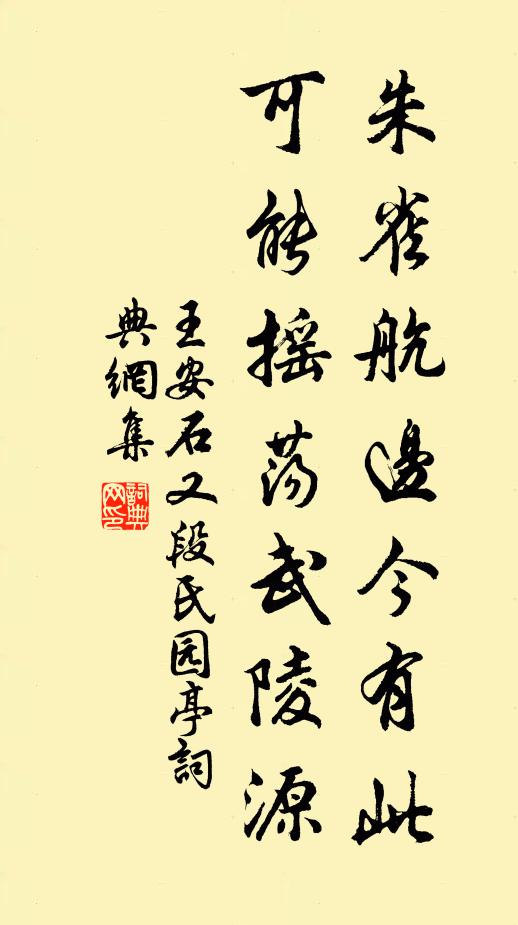 朱雀航邊今有此
可能摇荡武陵源
王安石又段氏园亭詞
典網集
詞典
网印